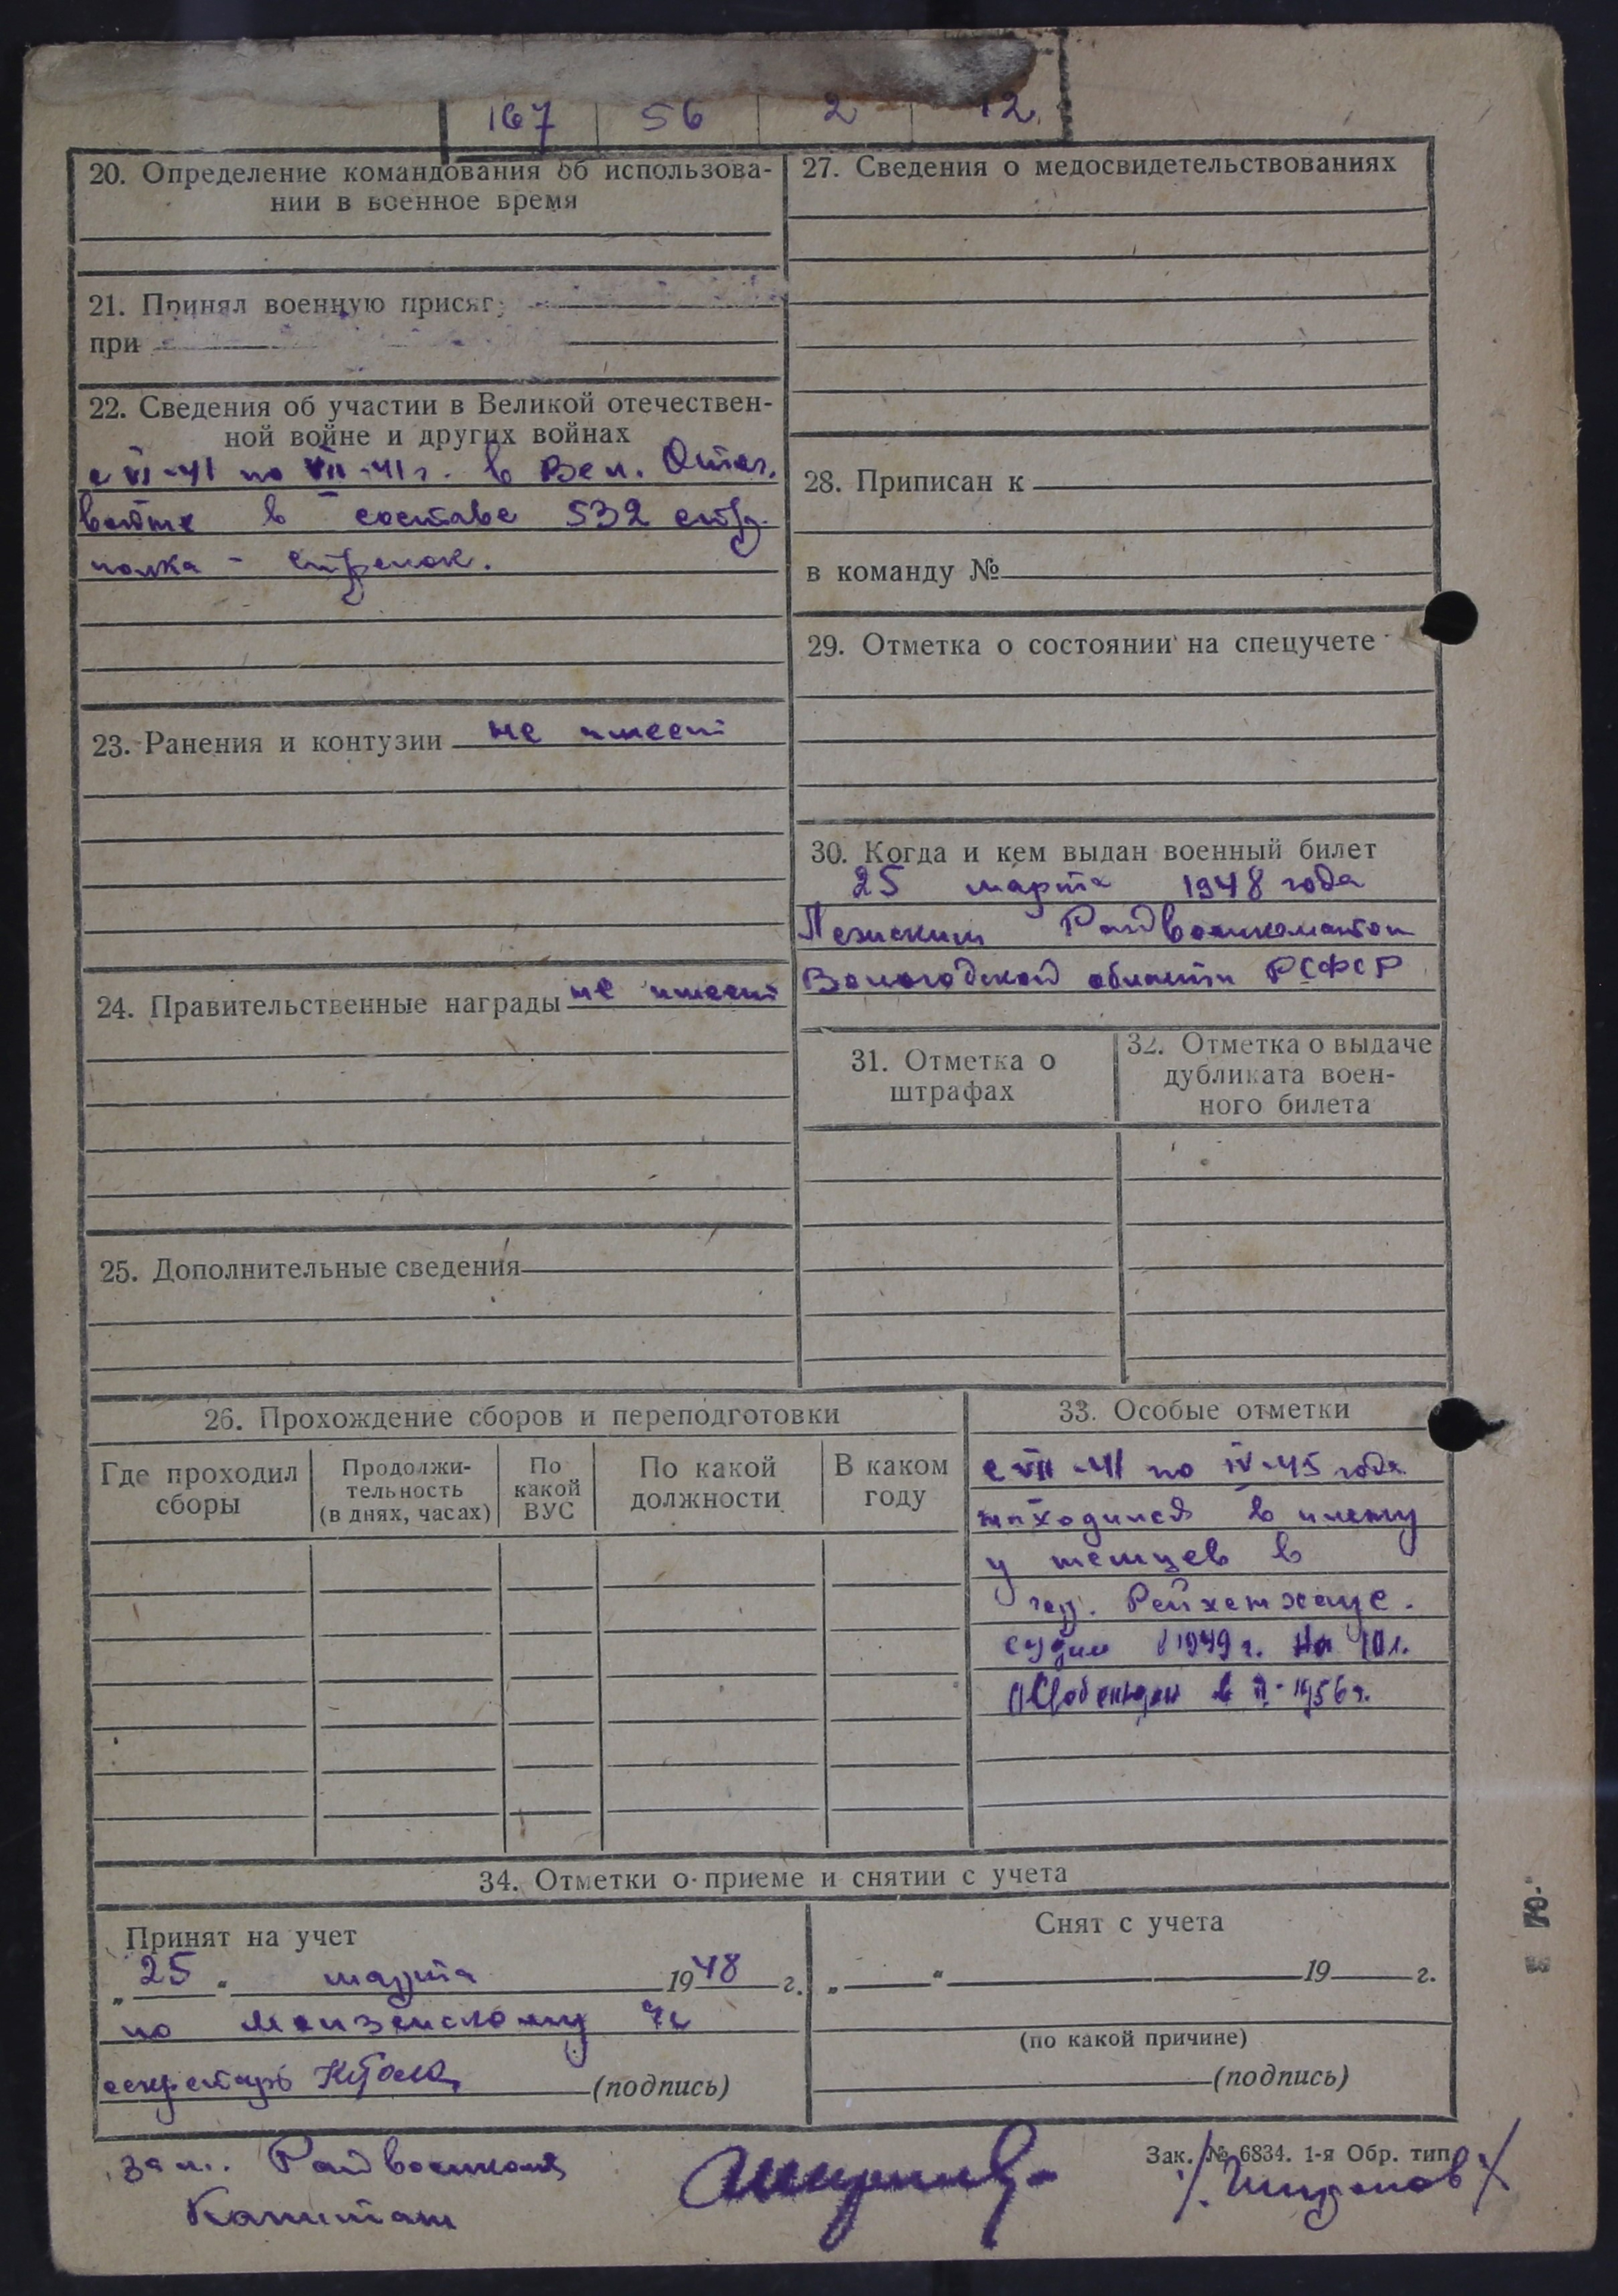 167 56 2 12
20. Определение командования об использова-
нии в военное время
21. Принял военную присягу
при
22. Сведения об участии в Великой отечествен-
ной войне и других войнах
с VI-41 по VII-41 г. в Вел. Отеч.
войне в составе 532 стр.
полка - стрелок.
23. Ранения и контузии не имеет
24. Правительственные награды не имеет
25. Дополнительные сведения
27. Сведения о медосвидетельствованиях
28. Приписан к
в команду №
29. Отметка о состоянии на спецучете
30. Когда и кем выдан военный билет
25 марта 1948 года
Лежским Райвоенкоматом
Вологодской области РСФСР
31. Отметка о
штрафах
32. Отметка о выдаче
дубликата воен-
ного билета
26. Прохождение сборов и переподготовки
Где проходил
сборы
Продолжи-
тельность
(в днях, часах)
По
какой
ВУС
По какой
должности
В каком
году
33. Особые отметки
с VII-41 по IV-45 года
находился в плену
у немцев в
гор.
судим в 1949 г. на 10 л.
Освобожден в 1956 г.
34. Отметки о приеме и снятии с учета
Принят на учет
„25“ марта 1948 г.
по
секретарь (подпись)
Снят с учета
„ “ 19 г.
(по какой причине)
(подпись)
Зак. № 6834. 1-я Обр. тип.
зам. Райвоенкома
Капитан